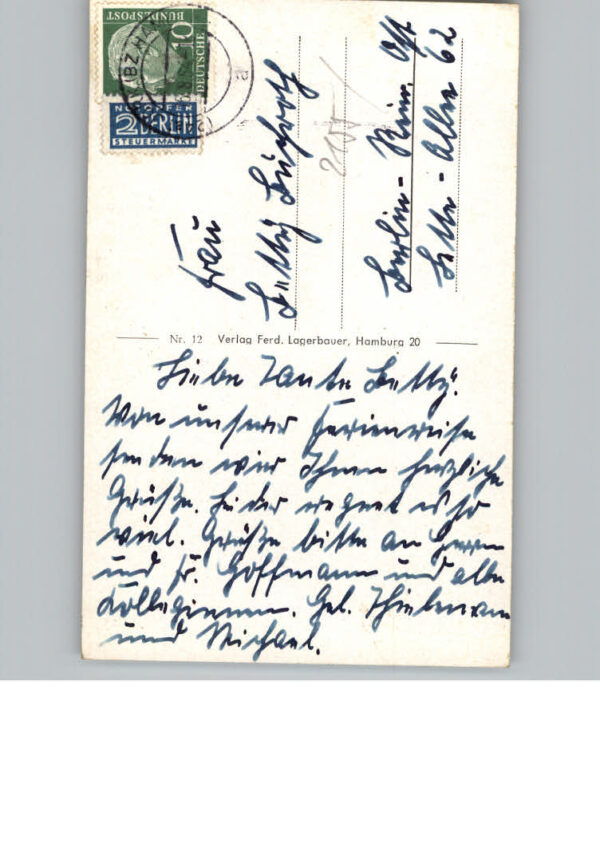 DEUTSCHE
BUNDESPOST
10
NOTOPFER
2 BERLIN
STEUERMARKE
(BZ.HA
a
Frau
Betty
2155
Berlin-
Allee 62
Nr. 12 Verlag Ferd. Lagerbauer, Hamburg 20
Liebe Tante Betty!
Von unserer Ferienreise
senden wir Ihnen herzliche
Grüße. Leider regnet es so
viel. Grüße bitte an Herrn
und Fr. Hoffmann und alle
Kolleginnen. Gel.
und Michael.